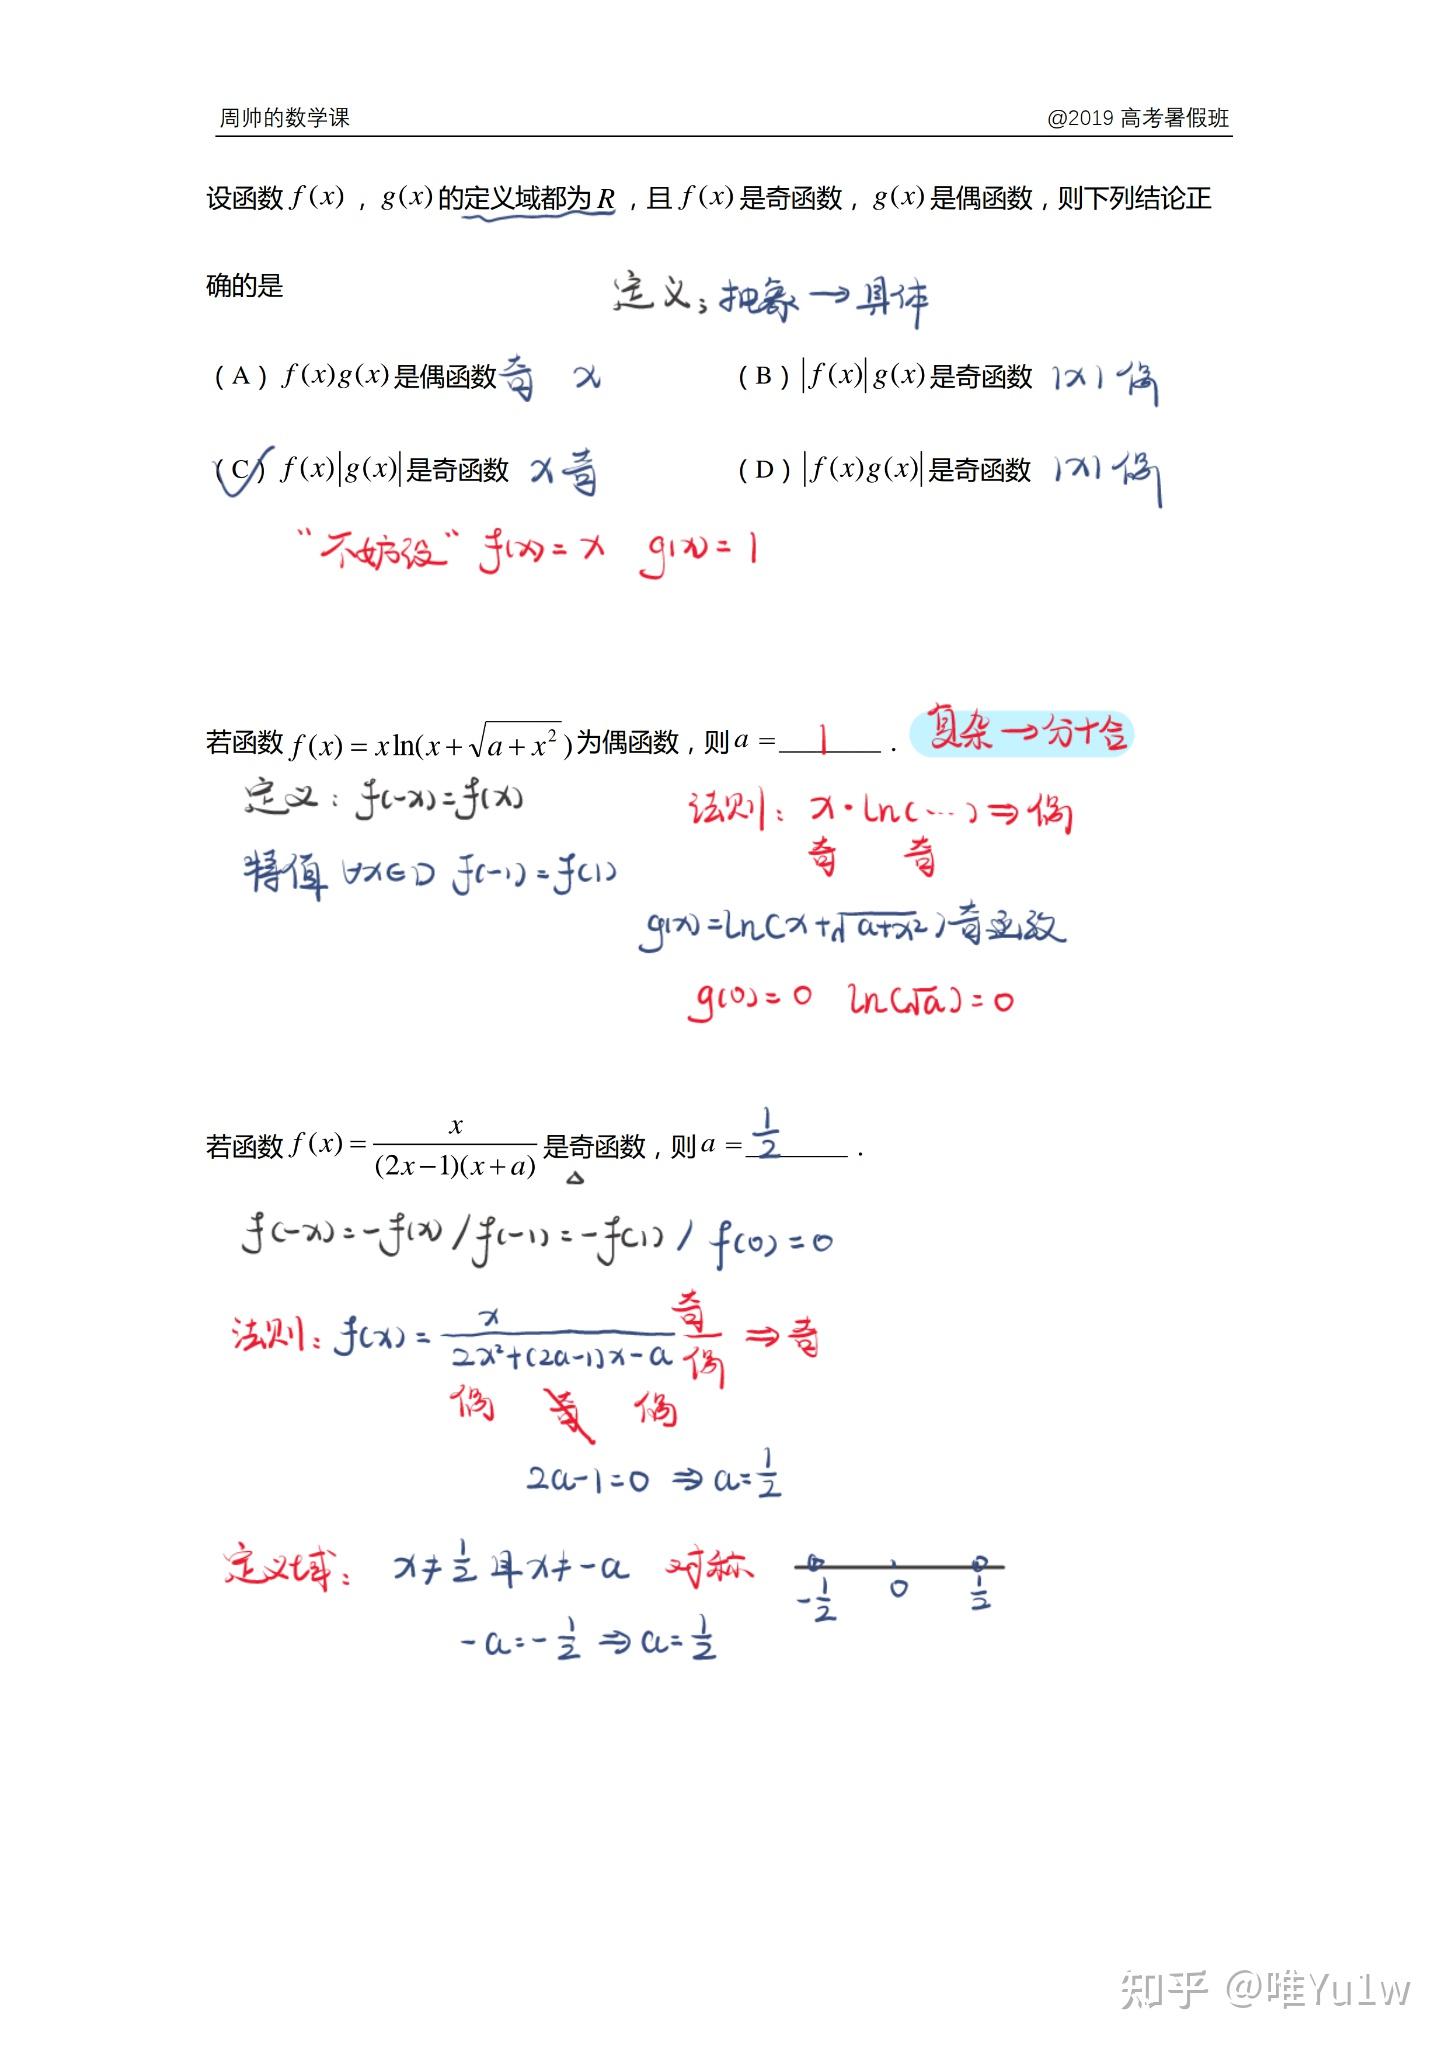 周帅的数学课 @2019 高考暑假班
设函数 f(x)，g(x)的定义域都为 R，且 f(x)是奇函数，g(x)是偶函数，则下列结论正
确的是
定义：抽象→具体
（A）f(x)g(x)是偶函数 奇 x （B）|f(x)|g(x)是奇函数 |x| 偶
（C）f(x)|g(x)|是奇函数 x 奇 （D）|f(x)g(x)|是奇函数 |x| 偶
“不妨设” f(x)=x g(x)=1
若函数 f(x)=xln(x+√(a+x²))为偶函数，则 a=1． 复杂→分+合
定义：f(-x)=f(x) 法则：x·ln(…)⇒偶
奇 奇
特值 ∀x∈D f(-1)=f(1)
g(x)=ln(x+√(a+x²))奇函数
g(0)=0 ln(√a)=0
若函数 f(x)=x/((2x-1)(x+a))是奇函数，则 a=1/2．
f(-x)=-f(x)/f(-1)=-f(1)/f(0)=0
法则：f(x)=x/(2x²+(2a-1)x-a) 奇/偶⇒奇
偶 奇 偶
2a-1=0⇒a=1/2
定义域：x≠1/2且x≠-a 对称 -1/2 0 1/2
-a=-1/2⇒a=1/2
知乎 @唯Yu1w